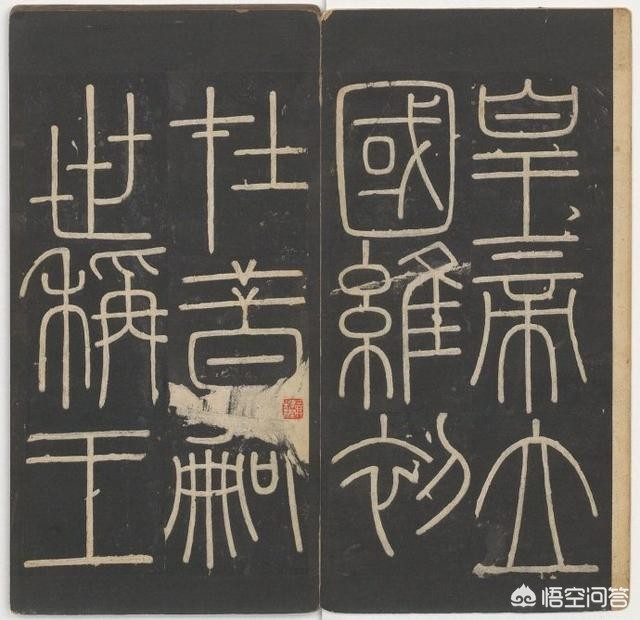 皇帝立
國維初
在昔嗣
世稱王
悟空问答